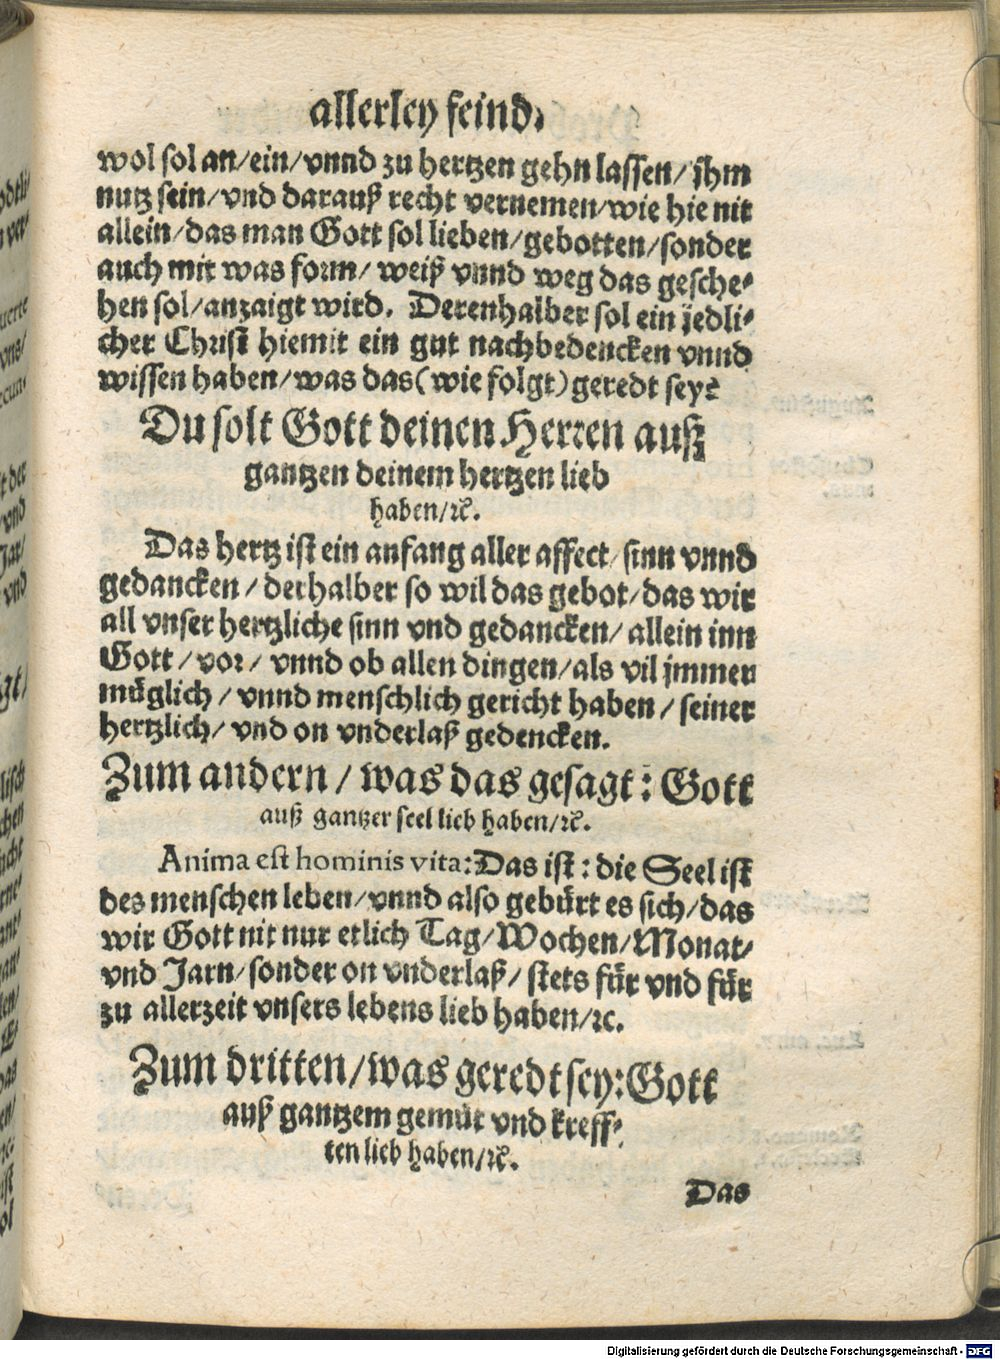 allerley feind.
wol sol an/ein/vnnd zu hertzen gehn lassen/jhm
nutz sein/vnd darauß recht vernemen/wie hie nit
allein/das man Gott sol lieben/gebotten/sonder
auch mit was form/ weiß vnnd weg das gesche-
hen sol/anzaigt wird. Derenhalber sol ein jedli-
cher Christ hiemit ein gut nachbedencken vnnd
wissen haben/was das(wie folgt)geredt sey?
Du solt Gott deinen Herren auß
gantzen deinem hertzen lieb
haben/ꝛc.
Das hertz ist ein anfang aller affect/sinn vnnd
gedancken/derhalber so wil das gebot/das wir
all vnser hertzliche sinn vnd gedancken/allein inn
Gott/vor/ vnnd ob allen dingen/als vil jmmer
müglich/vnnd menschlich gericht haben/seiner
hertzlich/vnd on vnderlaß gedencken.
Zum andern/was das gesagt: Gott
auß gantzer seel lieb haben/ꝛc.
Anima est hominis vita: Das ist: die Seel ist
des menschen leben/vnnd also gebürt es sich/das
wir Gott nit nur etlich Tag/Wochen/Monat/
vnd Jarn/sonder on vnderlaß/stets für vnd für
zu allerzeit vnsers lebens lieb haben/ꝛc.
Zum dritten/was geredt sey: Gott
auß gantzem gemüt vnd kreff-
ten lieb haben/ꝛc.
Das
Digitalisierung gefördert durch die Deutsche Forschungsgemeinschaft - DFG